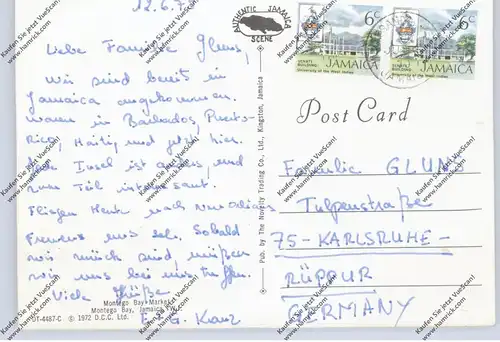 12.6.7
AUTHENTIC JAMAICA
SCENE
6c
SENATE
BUILDING
University of the West Indies
JAMAICA
6c
SENATE
BUILDING
University of the West Indies
JAMAICA
Liebe Familie Glum,
Wir sind bereits in
Jamaica angekommen.
waren in Barbados, Puerto-
Rico, Haiti, und jetzt hier.
Jede Insel ist anders, und
zum Teil interessant.
Fliegen Heute nach New Orleans
Freuen uns sehr. Sobald
wir zurück sind, müßen
wir uns bei uns treffen.
Viele Grüße
E. + G. Kranz
Montego Bay Market
Montego Bay, Jamaica, W.I.
DT-4487-C © 1972 D.C.C. Ltd.
Pub. by The Novelty Trading Co., Ltd., Kingston, Jamaica
Post Card
Familie GLUM
Tulpenstraße
75-KARLSRUHE-
RÜPPUR
GERMANY
Kaufen Sie jetzt VueScan!
www.hamrick.com